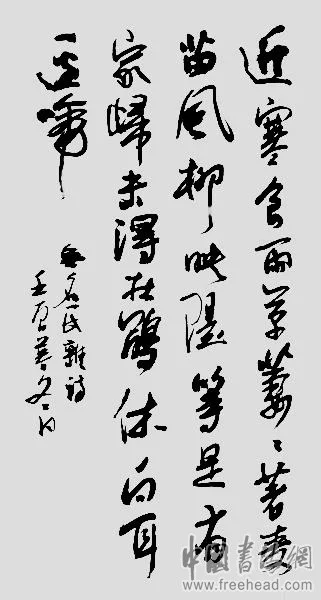 近寒食雨草萋〻著麥
苗風柳映隄等是有
家歸未得杜鵑休向耳
邊啼
無名氏雜詩
壬 暮冬日
中國書家網
www.freehead.com